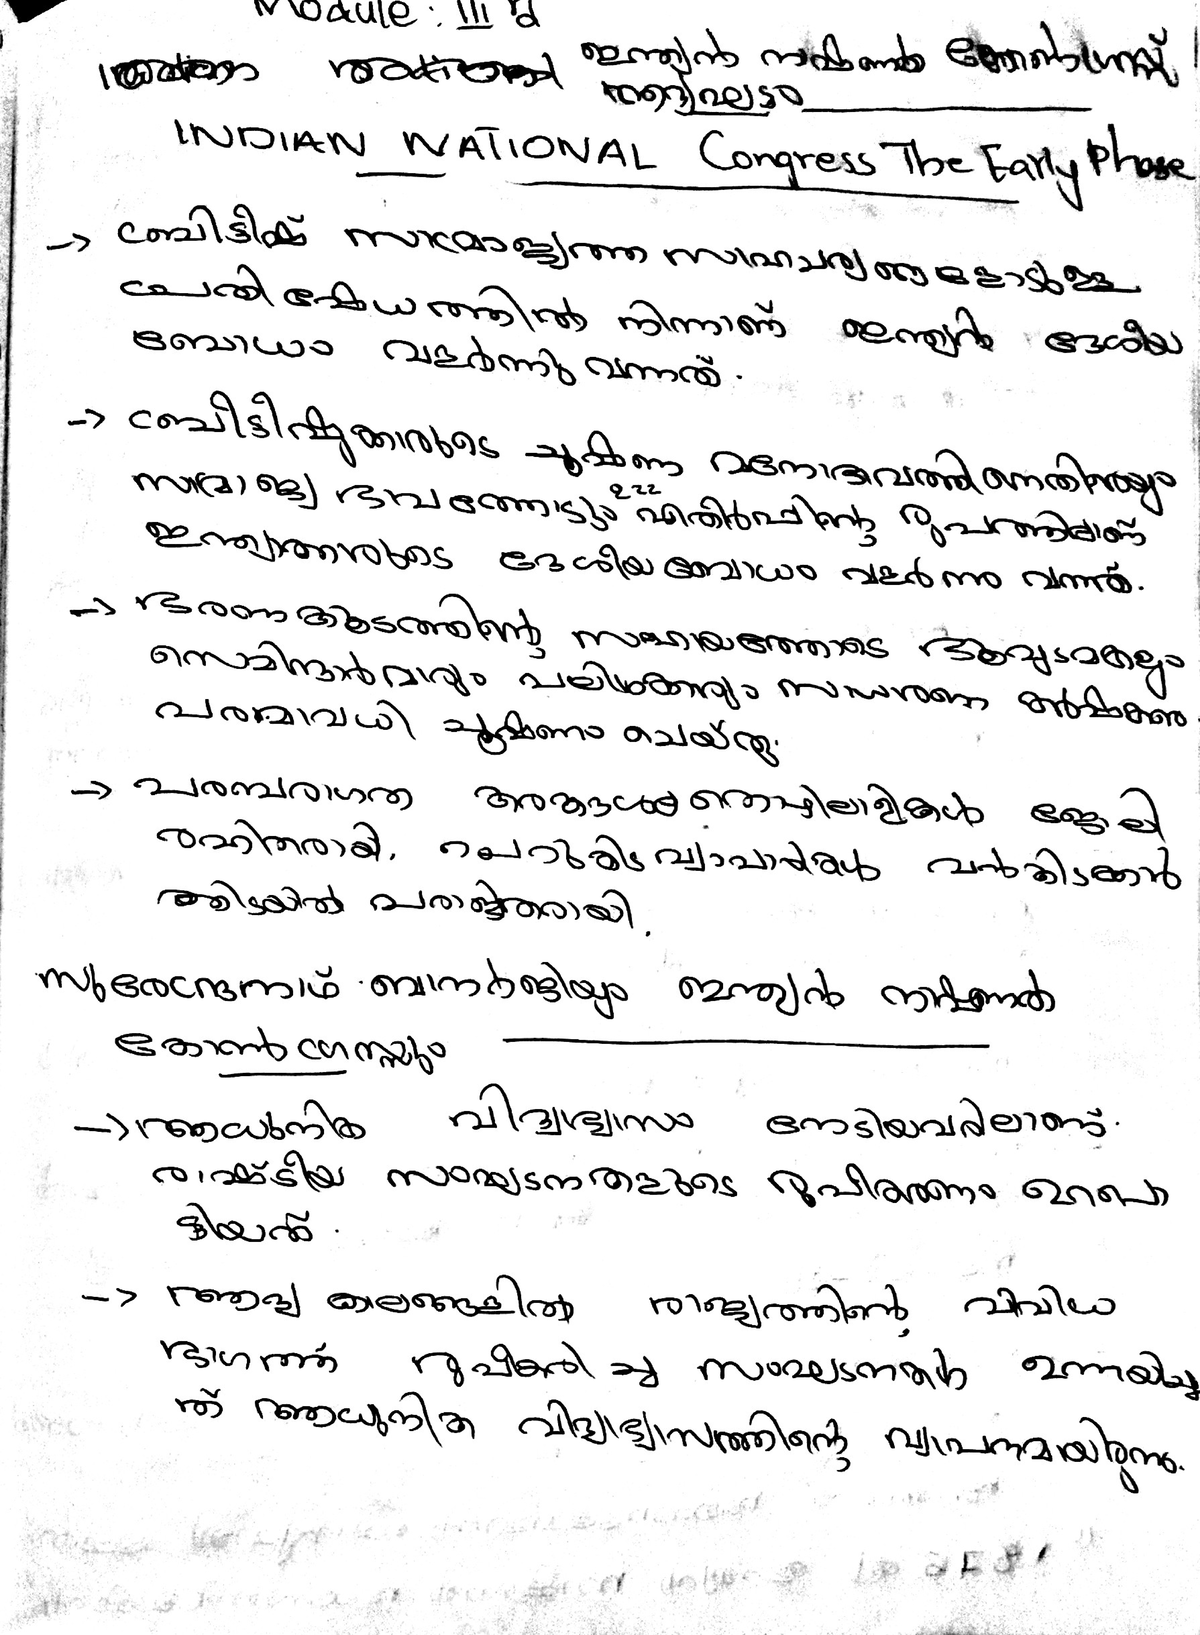 Module: III
ഇന്ത്യൻ നാഷണൽ കോൺഗ്രസ്സ്
ആദ്യഘട്ടം
INDIAN NATIONAL Congress The Early Phase
→ ബ്രിട്ടീഷ് സാമ്രാജ്യത്ത സാഹചര്യങ്ങളോടുള്ള
പ്രതിഷേധത്തിൽ നിന്നാണ് ഇന്ത്യൻ ദേശീയ
ബോധം വളർന്നു വന്നത്.
→ ബ്രിട്ടീഷുകാരുടെ ചൂഷണ
സാമ്രാജ്യ എതിർപ്പിന്റെ രൂപത്തിലാണ്
ഇന്ത്യാക്കാരുടെ ദേശീയബോധം വളർന്നു വന്നത്.
→ ഭരണകൂടത്തിന്റെ സഹായത്തോടെ ഭൂവുടമകളും
സെമിന്ദാർമാരും പലിശക്കാരും സാധാരണ കർഷകരെ
പരമാവധി ചൂഷണം ചെയ്തു.
→ പരമ്പരാഗത കരകൗശല തൊഴിലാളികൾ ജോലി
രഹിതരായി. ചെറുകിട വ്യാപാരികൾ വൻകിടക്കാർ
ക്കിടയിൽ പരാജിതരായി.
സുരേന്ദ്രനാഥ് ബാനർജിയും ഇന്ത്യൻ നാഷണൽ
കോൺഗ്രസ്സും
→ ആധുനിക വിദ്യാഭ്യാസം നേടിയവരിലാണ്
രാഷ്ട്രീയ സംഘടനകളുടെ രൂപീകരണം ഉറപ്പാ
ക്കിയത്.
→ ആദ്യ കാലങ്ങളിൽ രാജ്യത്തിന്റെ വിവിധ
ഭാഗത്ത് രൂപീകരിച്ച സംഘടനകൾ ഉന്നയിച്ച
ത് ആധുനിക വിദ്യാഭ്യാസത്തിന്റെ വ്യാപനമായിരുന്നു.